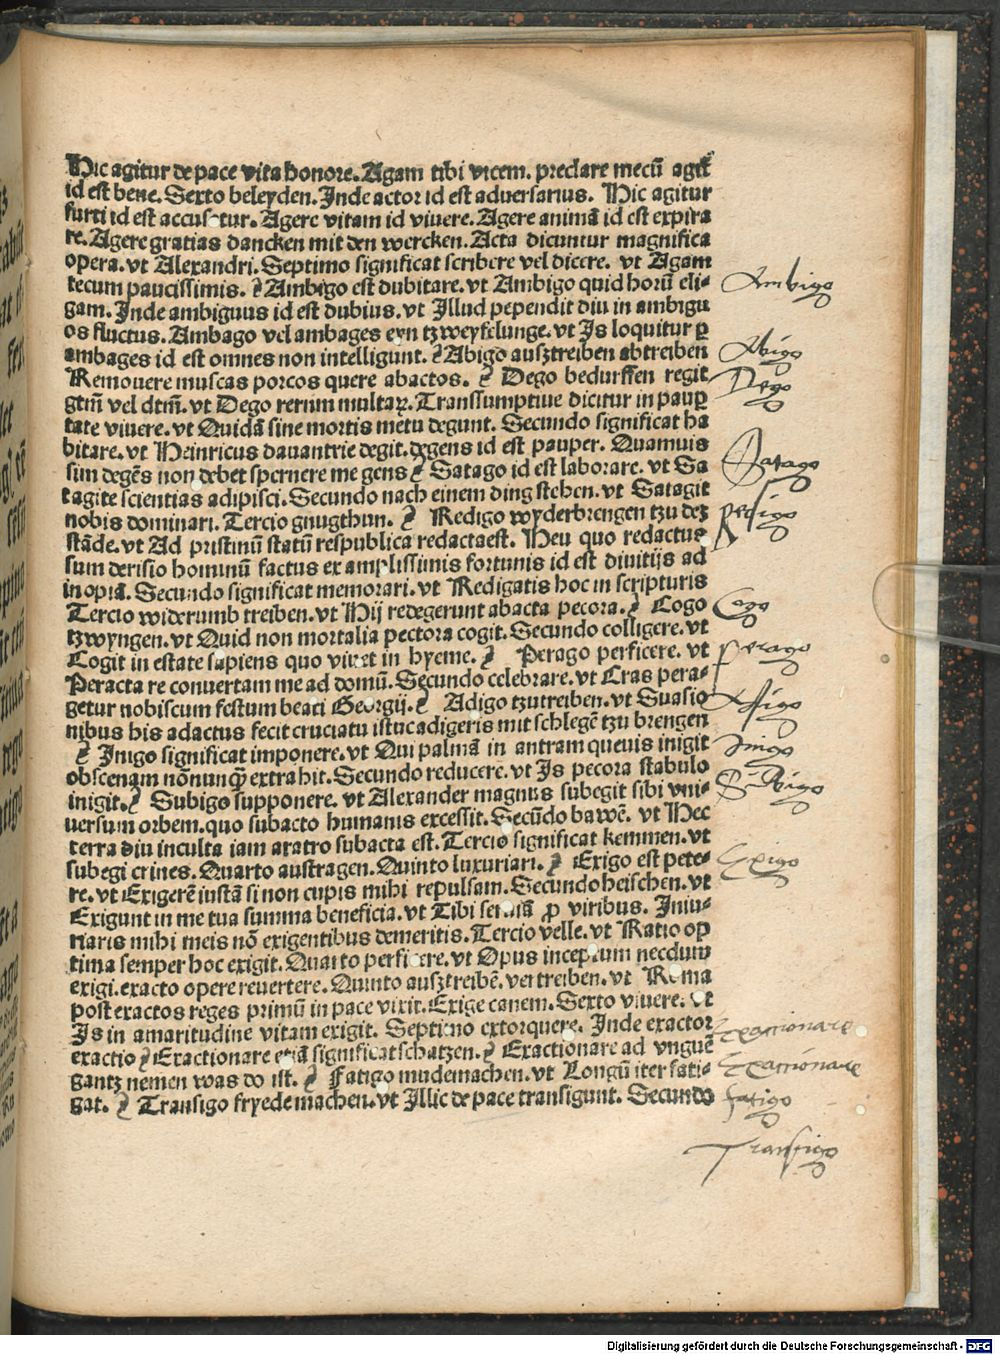 Hic agitur de pace vita honore. Agam tibi vicem. preclare mecū agit̄
id est bene. Sexto beleyden. Inde actor id est adversarius. Hic agitur
furti id est accusatur. Agere vitam id vivere. Agere animā id est expira
re. Agere gratias dancken mit den wercken. Acta dicuntur magnifica
opera. vt Alexandri. Septimo significat scribere vel dicere. vt Agam
tecum paucissimis. Ambigo est dubitare. vt Ambigo quid horū eli-
gam. Inde ambiguus id est dubius. vt Illud pependit diu in ambigu
os fluctus. Ambago vel ambages eyn tzweyfelunge. vt Is loquitur ꝑ
ambages id est omnes non intelligunt. Abigo ausztreiben abtreiben
Removere muscas porcos quere abactos. Dego bedurffen regit
gtm̄ vel dtm̄. vt Dego rerum multaꝝ. Transsumptive dicitur in pauꝑ
tate vivere. vt Quidā sine mortis metu degunt. Secundo significat ha
bitare. vt Heinricus davantrie degit. degens id est pauper. Quamuis
sim degēs non debet spernere me gens Satago id est laborare. vt Sa
tagite scientias adipisci. Secundo nach einem ding stehen. vt Satagit
nobis dominari. Tercio gnugthun. Redigo wyderbrengen tzu dez
stāde. vt Ad pristinū statū respublica redacta est. Heu quo redactus
sum derisio hominū factus ex amplissimis fortunis id est divitijs ad
inopiā. Secundo significat memorari. vt Redigatis hoc in scripturis
Tercio widerumb treiben. vt Hij redegerunt abacta pecora. Cogo
tzwyngen. vt Quid non mortalia pectora cogit. Secundo colligere. vt
Cogit in estate sapiens quo vivet in hyeme. Perago perficere. vt
Peracta re convertam me ad domū. Secundo celebrare. vt Cras pera-
getur nobiscum festum beati Georgij. Adigo tzutreiben. vt Suasio
nibus his adactus fecit cruciatu istuc adigeris mit schlegē tzu brengen
Inigo significat imponere. vt Qui palmā in antram quevis inigit
obscenam nōnunq̄ extrahit. Secundo reducere. vt Is pecora stabulo
inigit. Subigo supponere. vt Alexander magnus subegit sibi vni-
versum orbem. quo subacto humanis excessit. Secūdo bawē. vt Hec
terra diu inculta iam aratro subacta est. Tercio significat kemmen. vt
subegi crines. Quarto austragen. Quinto luxuriari. Exigo est pete-
re. vt Exigerē iustā si non cupis mihi repulsam. Secundo heischen. vt
Exigunt in me tua summa beneficia. vt Tibi serviā ꝓ viribus. Iniu-
riaris mihi meis nō exigentibus demeritis. Tercio velle. vt Ratio op
tima semper hoc exigit. Quarto perficere. vt Opus inceptum necdum
exigi. exacto opere revertere. Quinto ausztreibē. vertreiben. vt Roma
post exactos reges primū in pace vixit. Exige canem. Sexto vivere. vt
Is in amaritudine vitam exigit. Septimo extorquere. Inde exactor
exactio Exactionare etiā significat schatzen. Exactionare ad vnguē
gantz nemen was do ist. Fatigo mudemachen. vt Longū iter fati-
gat. Transigo fryede machen. vt Illic de pace transigunt. Secundo
Ambigo
Abigo
Dego
Satago
Redigo
Cogo
Perago
Adigo
Inigo
Subigo
Exigo
Exactionare
Exactionare
Fatigo
Transigo
Digitalisierung gefördert durch die Deutsche Forschungsgemeinschaft - DFG